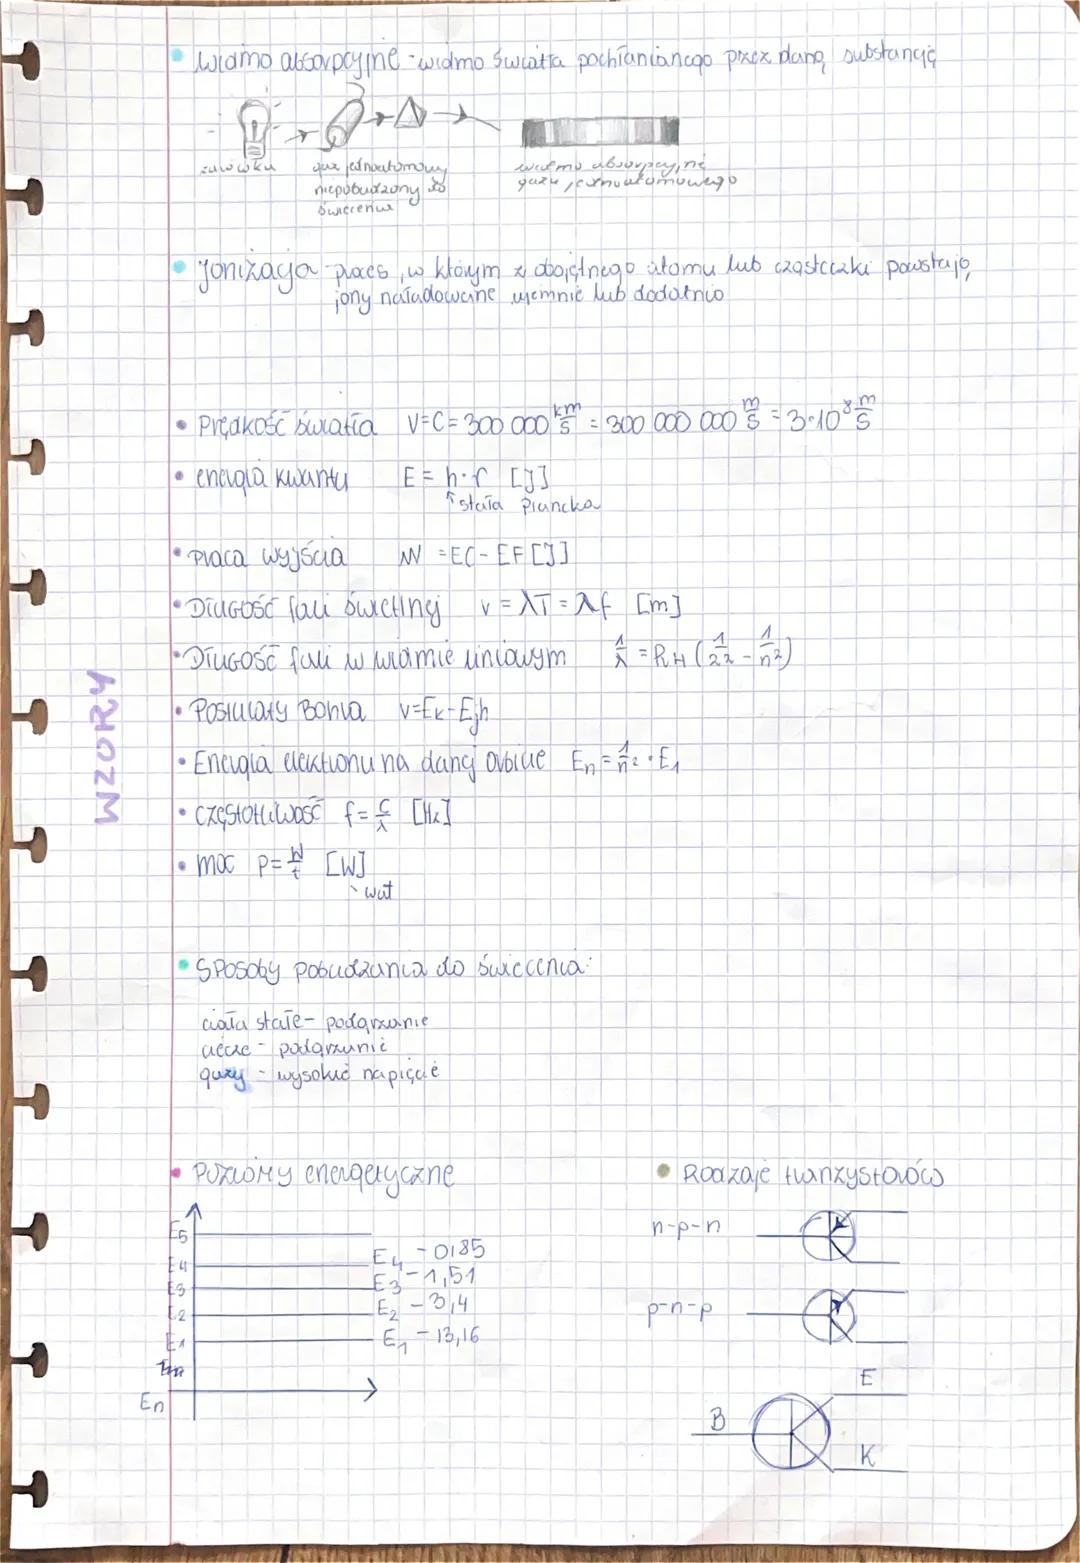 • Widmo absorpcyjne - widmo światła pochłanianego przez daną substancję
żarówka
gaz jednoatomowy
niepobudzony do
świecenia
widmo absorpcyjne
gazu jednoatomowego
• Jonizacja - proces, w którym z obojętnego atomu lub cząsteczki powstają
jony naładowane ujemnie lub dodatnio
WZORY
• Prędkość światła V=C= 300 000 km/s = 300 000 000 m/s = 3·10⁸ m/s
• energia kwantu E = h·f [J]
↑ stała Plancka
• praca wyjścia W = EC - EF [J]
• Długość fali świetlnej v = λT = λf [m]
• Długość fali w widmie liniowym 1/λ = RH (1/2² - 1/n²)
• Postulaty Bohra v=Ek-Ejh
• Energia elektronu na danej orbicie En = 1/n² · E1
• częstotliwość f = c/λ [Hz]
• moc P = W/t [W]
wat
• Sposoby pobudzania do świecenia:
ciała stałe - podgrzanie
ciecze - podgrzanie
gazy - wysokie napięcie
• Poziomy energetyczne
E5
E4
E3
E2
E1
En
E4 -0,85
E3 -1,51
E2 -3,4
E1 -13,16
• Rodzaje tranzystorów
n-p-n
p-n-p
B
E
K